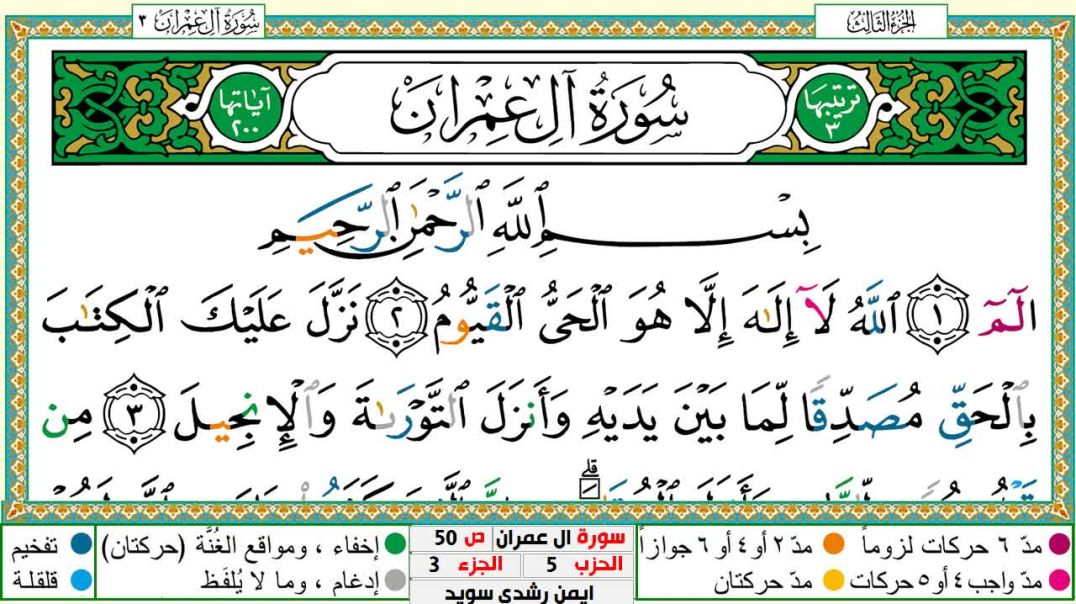 سُورَةُ آلِ عِمْرَان ٣
الجُزْءُ الثَّالِثُ
سُورَةُ آلِ عِمْرَانَ
ترتيبها ٣
آياتها ٢٠٠
بِسْمِ ٱللَّهِ ٱلرَّحْمَٰنِ ٱلرَّحِيمِ
الٓمٓ ١ ٱللَّهُ لَآ إِلَٰهَ إِلَّا هُوَ ٱلْحَىُّ ٱلْقَيُّومُ ٢ نَزَّلَ عَلَيْكَ ٱلْكِتَٰبَ
بِٱلْحَقِّ مُصَدِّقًا لِّمَا بَيْنَ يَدَيْهِ وَأَنزَلَ ٱلتَّوْرَىٰةَ وَٱلْإِنجِيلَ ٣ مِن
مدّ ٦ حركات لزوماً
مدّ ٢ أو ٤ أو ٦ جوازاً
مدّ واجب ٤ أو ٥ حركات
مدّ حركتان
سورة ال عمران ص 50
الحزب 5 الجزء 3
ايمن رشدى سويد
إخفاء ، ومواقع الغُنَّة (حركتان)
إدغام ، وما لا يُلفَظ
تفخيم
قلقلة